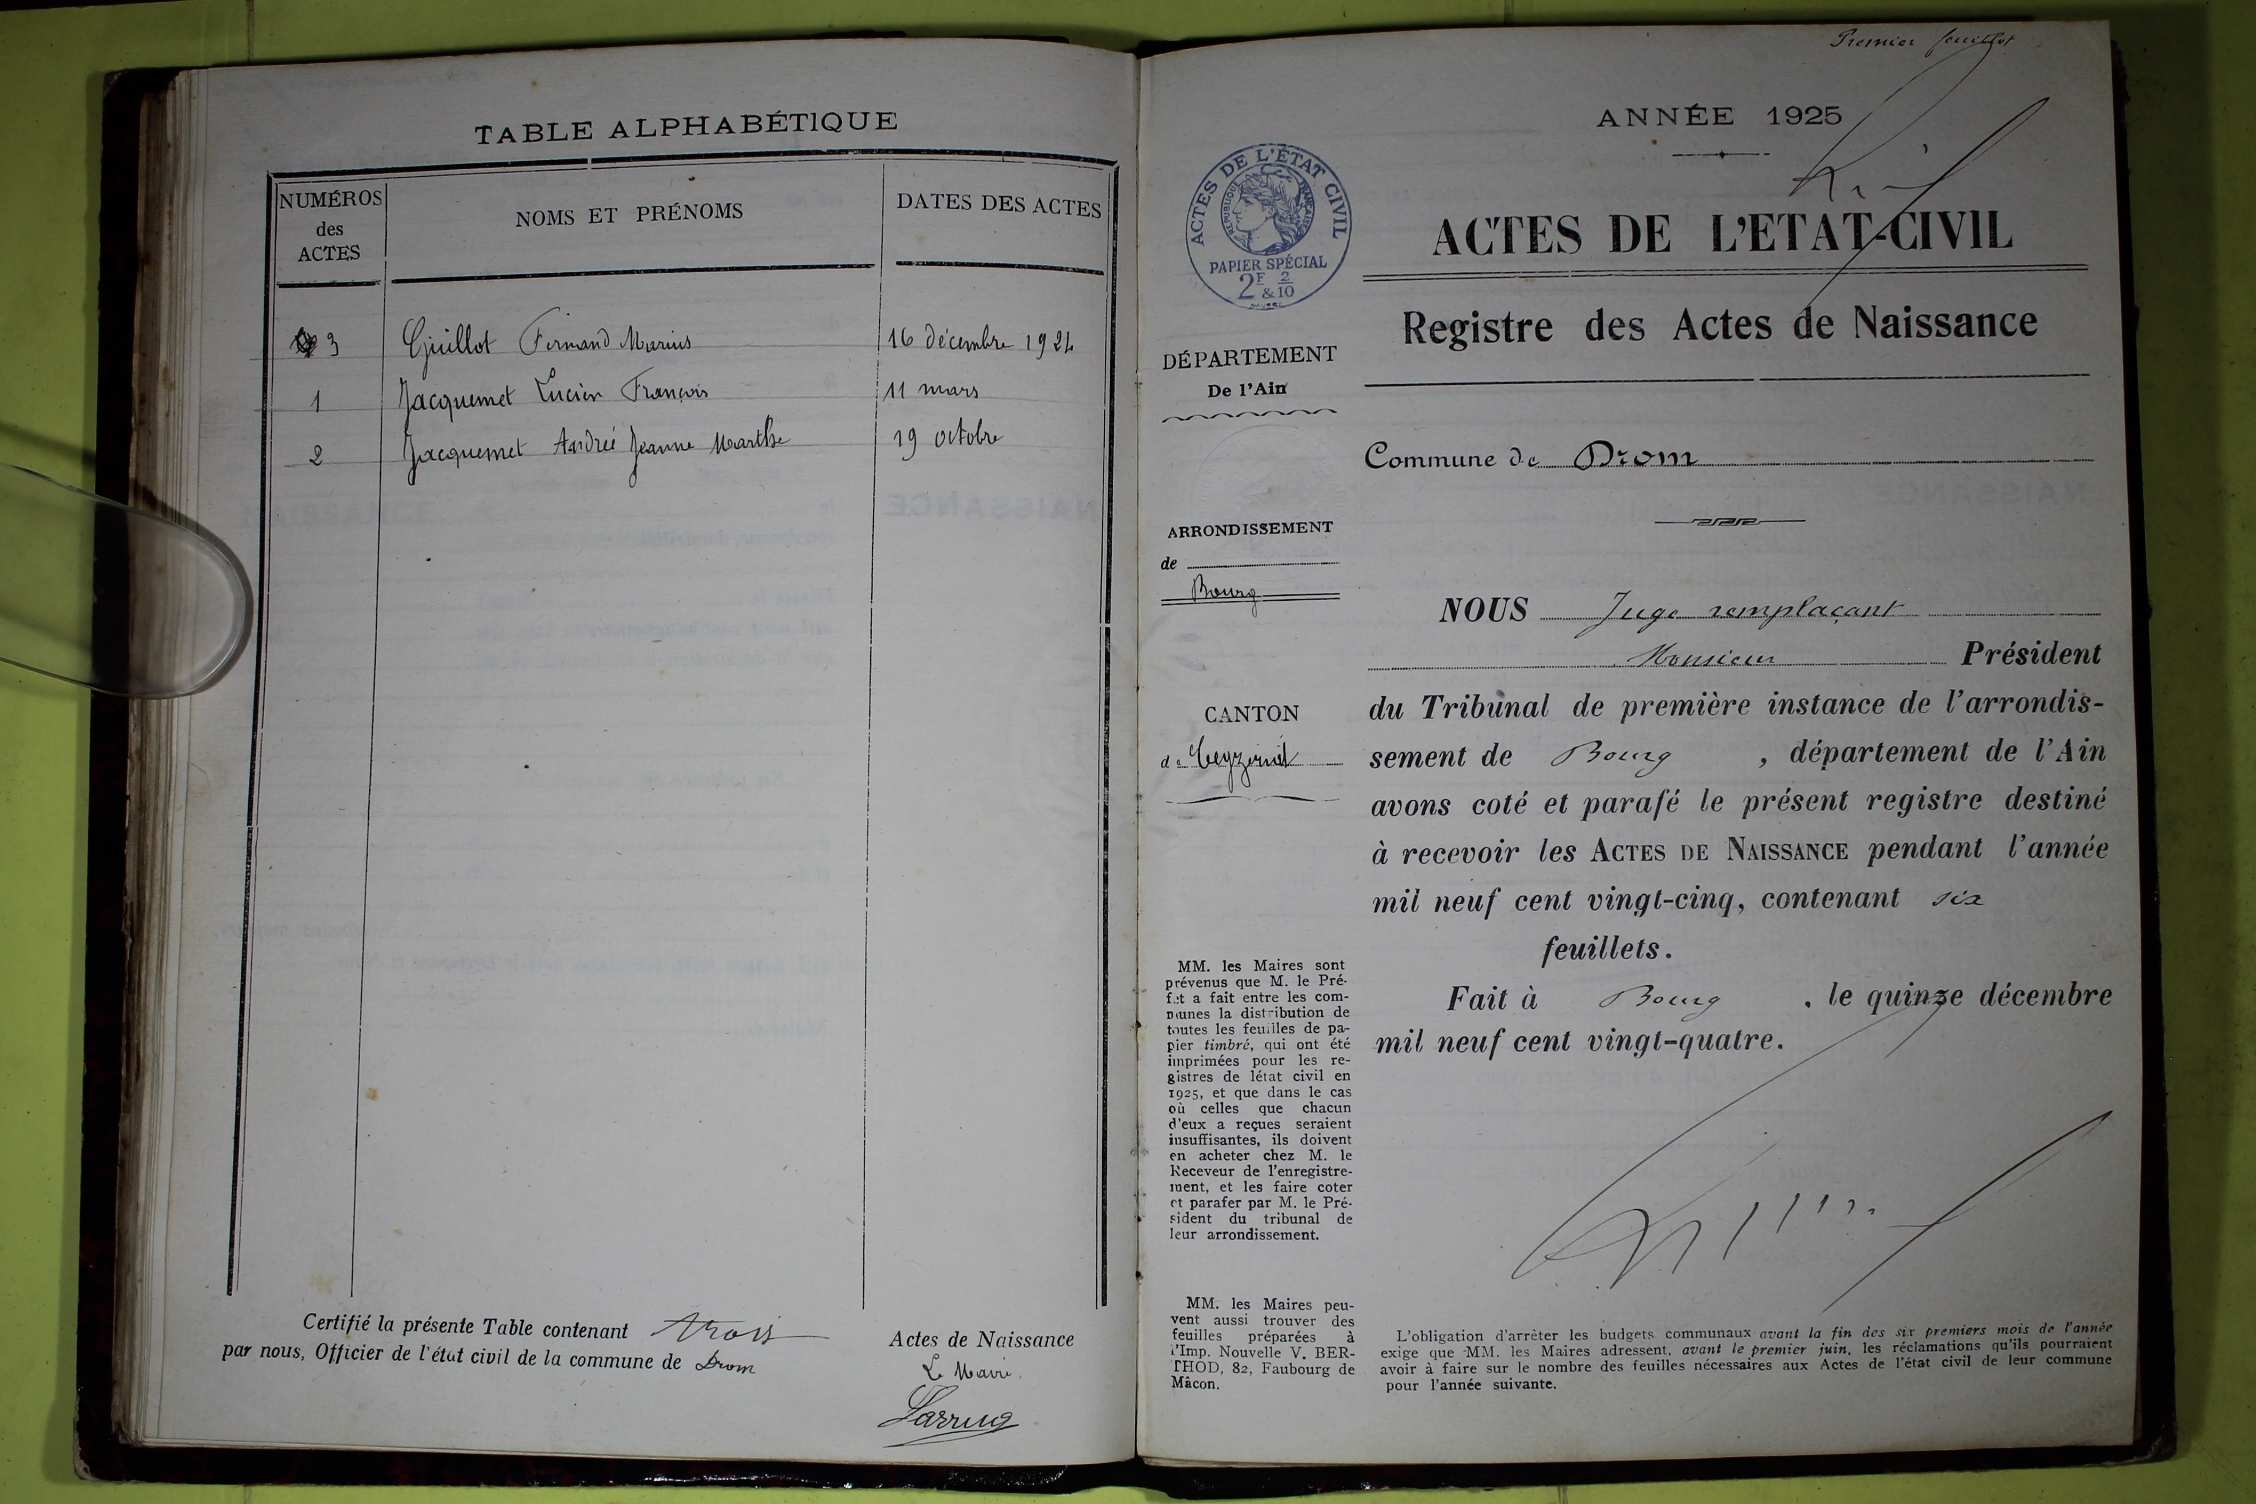 TABLE ALPHABÉTIQUE
NUMÉROS
des
ACTES
NOMS ET PRÉNOMS
DATES DES ACTES
3 Guillot Fernand Marius 16 décembre 1924
1 Jacquemet Lucien François 11 mars
2 Jacquemet Andrée Jeanne Marthe 19 octobre
Certifié la présente Table contenant trois Actes de Naissance
par nous, Officier de l'état civil de la commune de Drom
Le Maire
Premier feuillet
ANNÉE 1925
ACTES DE L'ÉTAT CIVIL
RÉPUBLIQUE FRANÇAISE
PAPIER SPÉCIAL
2F 2
& 10
ACTES DE L'ETAT-CIVIL
Registre des Actes de Naissance
DÉPARTEMENT
De l'Ain
Commune de Drom
ARRONDISSEMENT
de
Bourg
CANTON
de Ceyzériat
NOUS Juge remplaçant
Monsieur Président
du Tribunal de première instance de l'arrondis-
sement de Bourg , département de l'Ain
avons coté et parafé le présent registre destiné
à recevoir les ACTES DE NAISSANCE pendant l'année
mil neuf cent vingt-cinq, contenant six
feuillets.
Fait à Bourg , le quinze décembre
mil neuf cent vingt-quatre.
MM. les Maires sont
prévenus que M. le Pré-
fet a fait entre les com-
munes la distribution de
toutes les feuilles de pa-
pier timbré, qui ont été
imprimées pour les re-
gistres de létat civil en
1925, et que dans le cas
où celles que chacun
d'eux a reçues seraient
insuffisantes, ils doivent
en acheter chez M. le
Receveur de l'enregistre-
ment, et les faire coter
et parafer par M. le Pré-
sident du tribunal de
leur arrondissement.
MM. les Maires peu-
vent aussi trouver des
feuilles préparées à
l'Imp. Nouvelle V. BER-
THOD, 82, Faubourg de
Mâcon.
L'obligation d'arrêter les budgets communaux avant la fin des six premiers mois de l'année
exige que MM. les Maires adressent, avant le premier juin, les réclamations qu'ils pourraient
avoir à faire sur le nombre des feuilles nécessaires aux Actes de l'état civil de leur commune
pour l'année suivante.